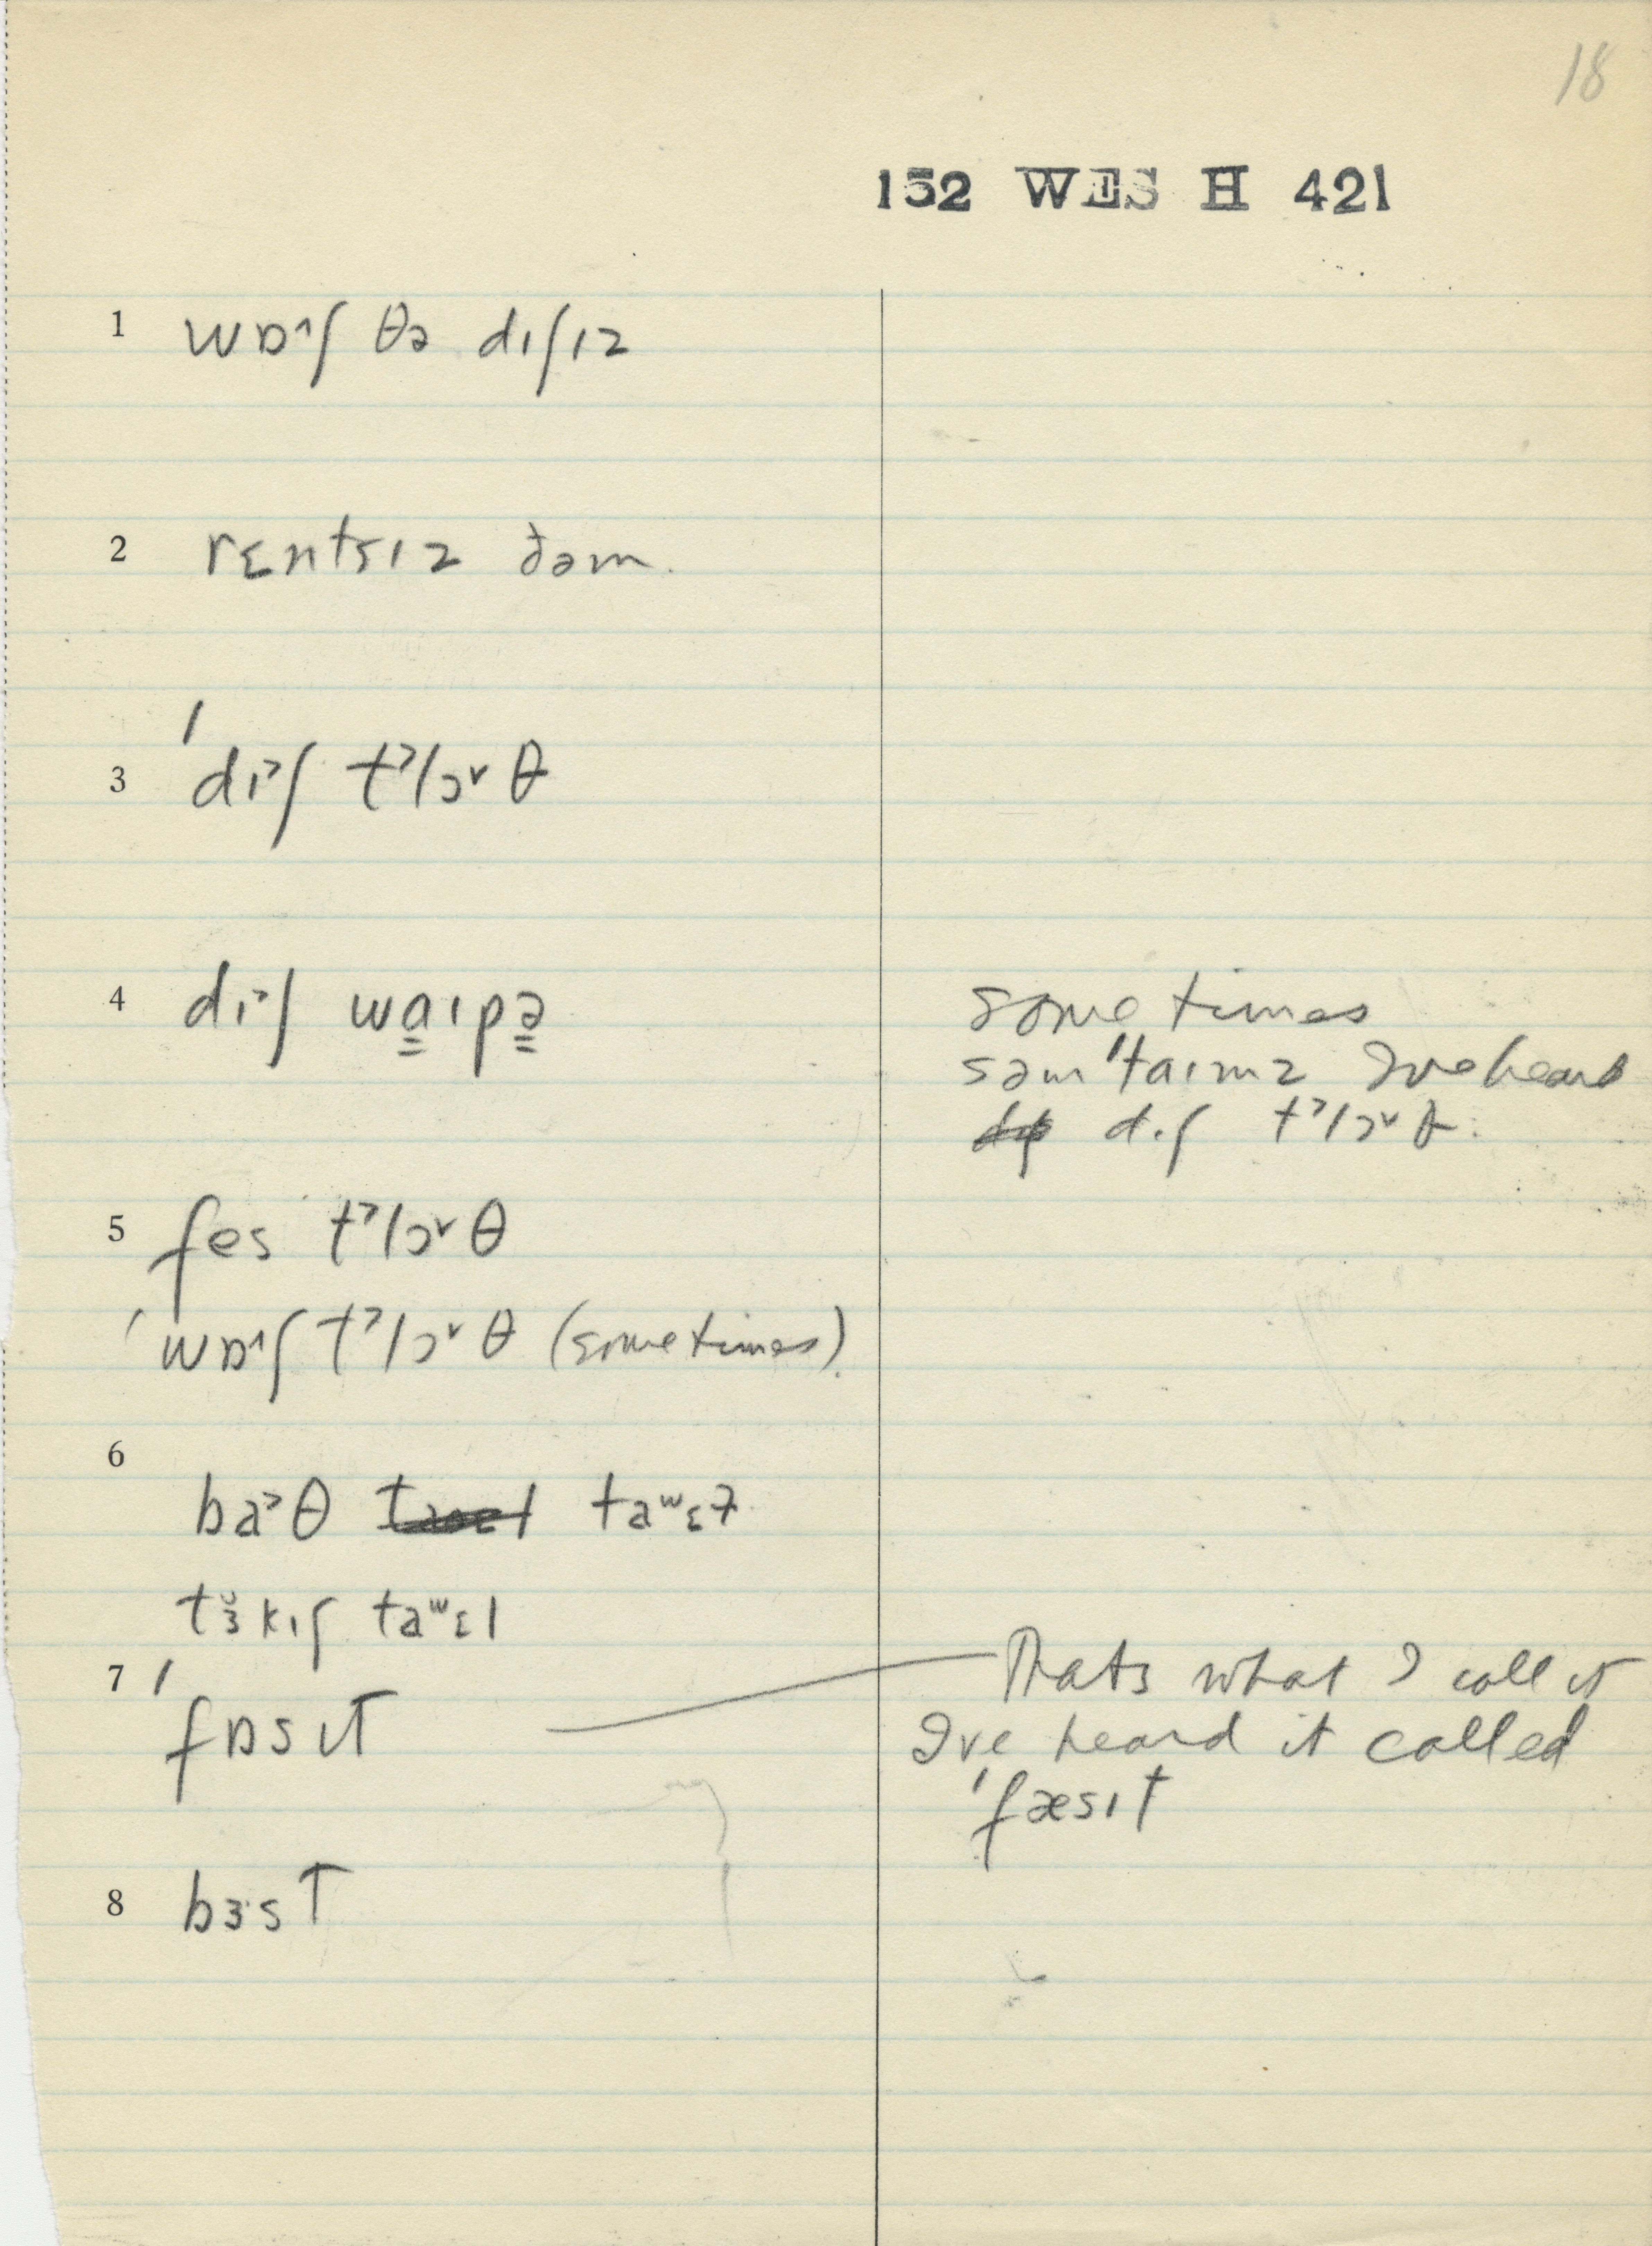 18
152 WES H 421
1 wɒ˄ʃ θə dɪʃɪz
2 rɛntsɪz ðəm.
3 ˈdɪ˃ʃ t˃lɔ˅θ
4 dɪ˃ʃ wa̳ɪpə̳
sometimes
səmˈtaɪmz I've heard
dɪʃ t˃lɔ˅θ.
5 fes t˃lɔ˅θ
ˈwɒ˄ʃ t˃lɔ˅θ (sometimes).
6
ba˃θ taʷɛɫ
tɜ̆kɪʃ taʷɛl
7 ˈfɒsɪT
Thats what I call it
I've heard it called
ˈfæsɪt
8 bɜ·sT